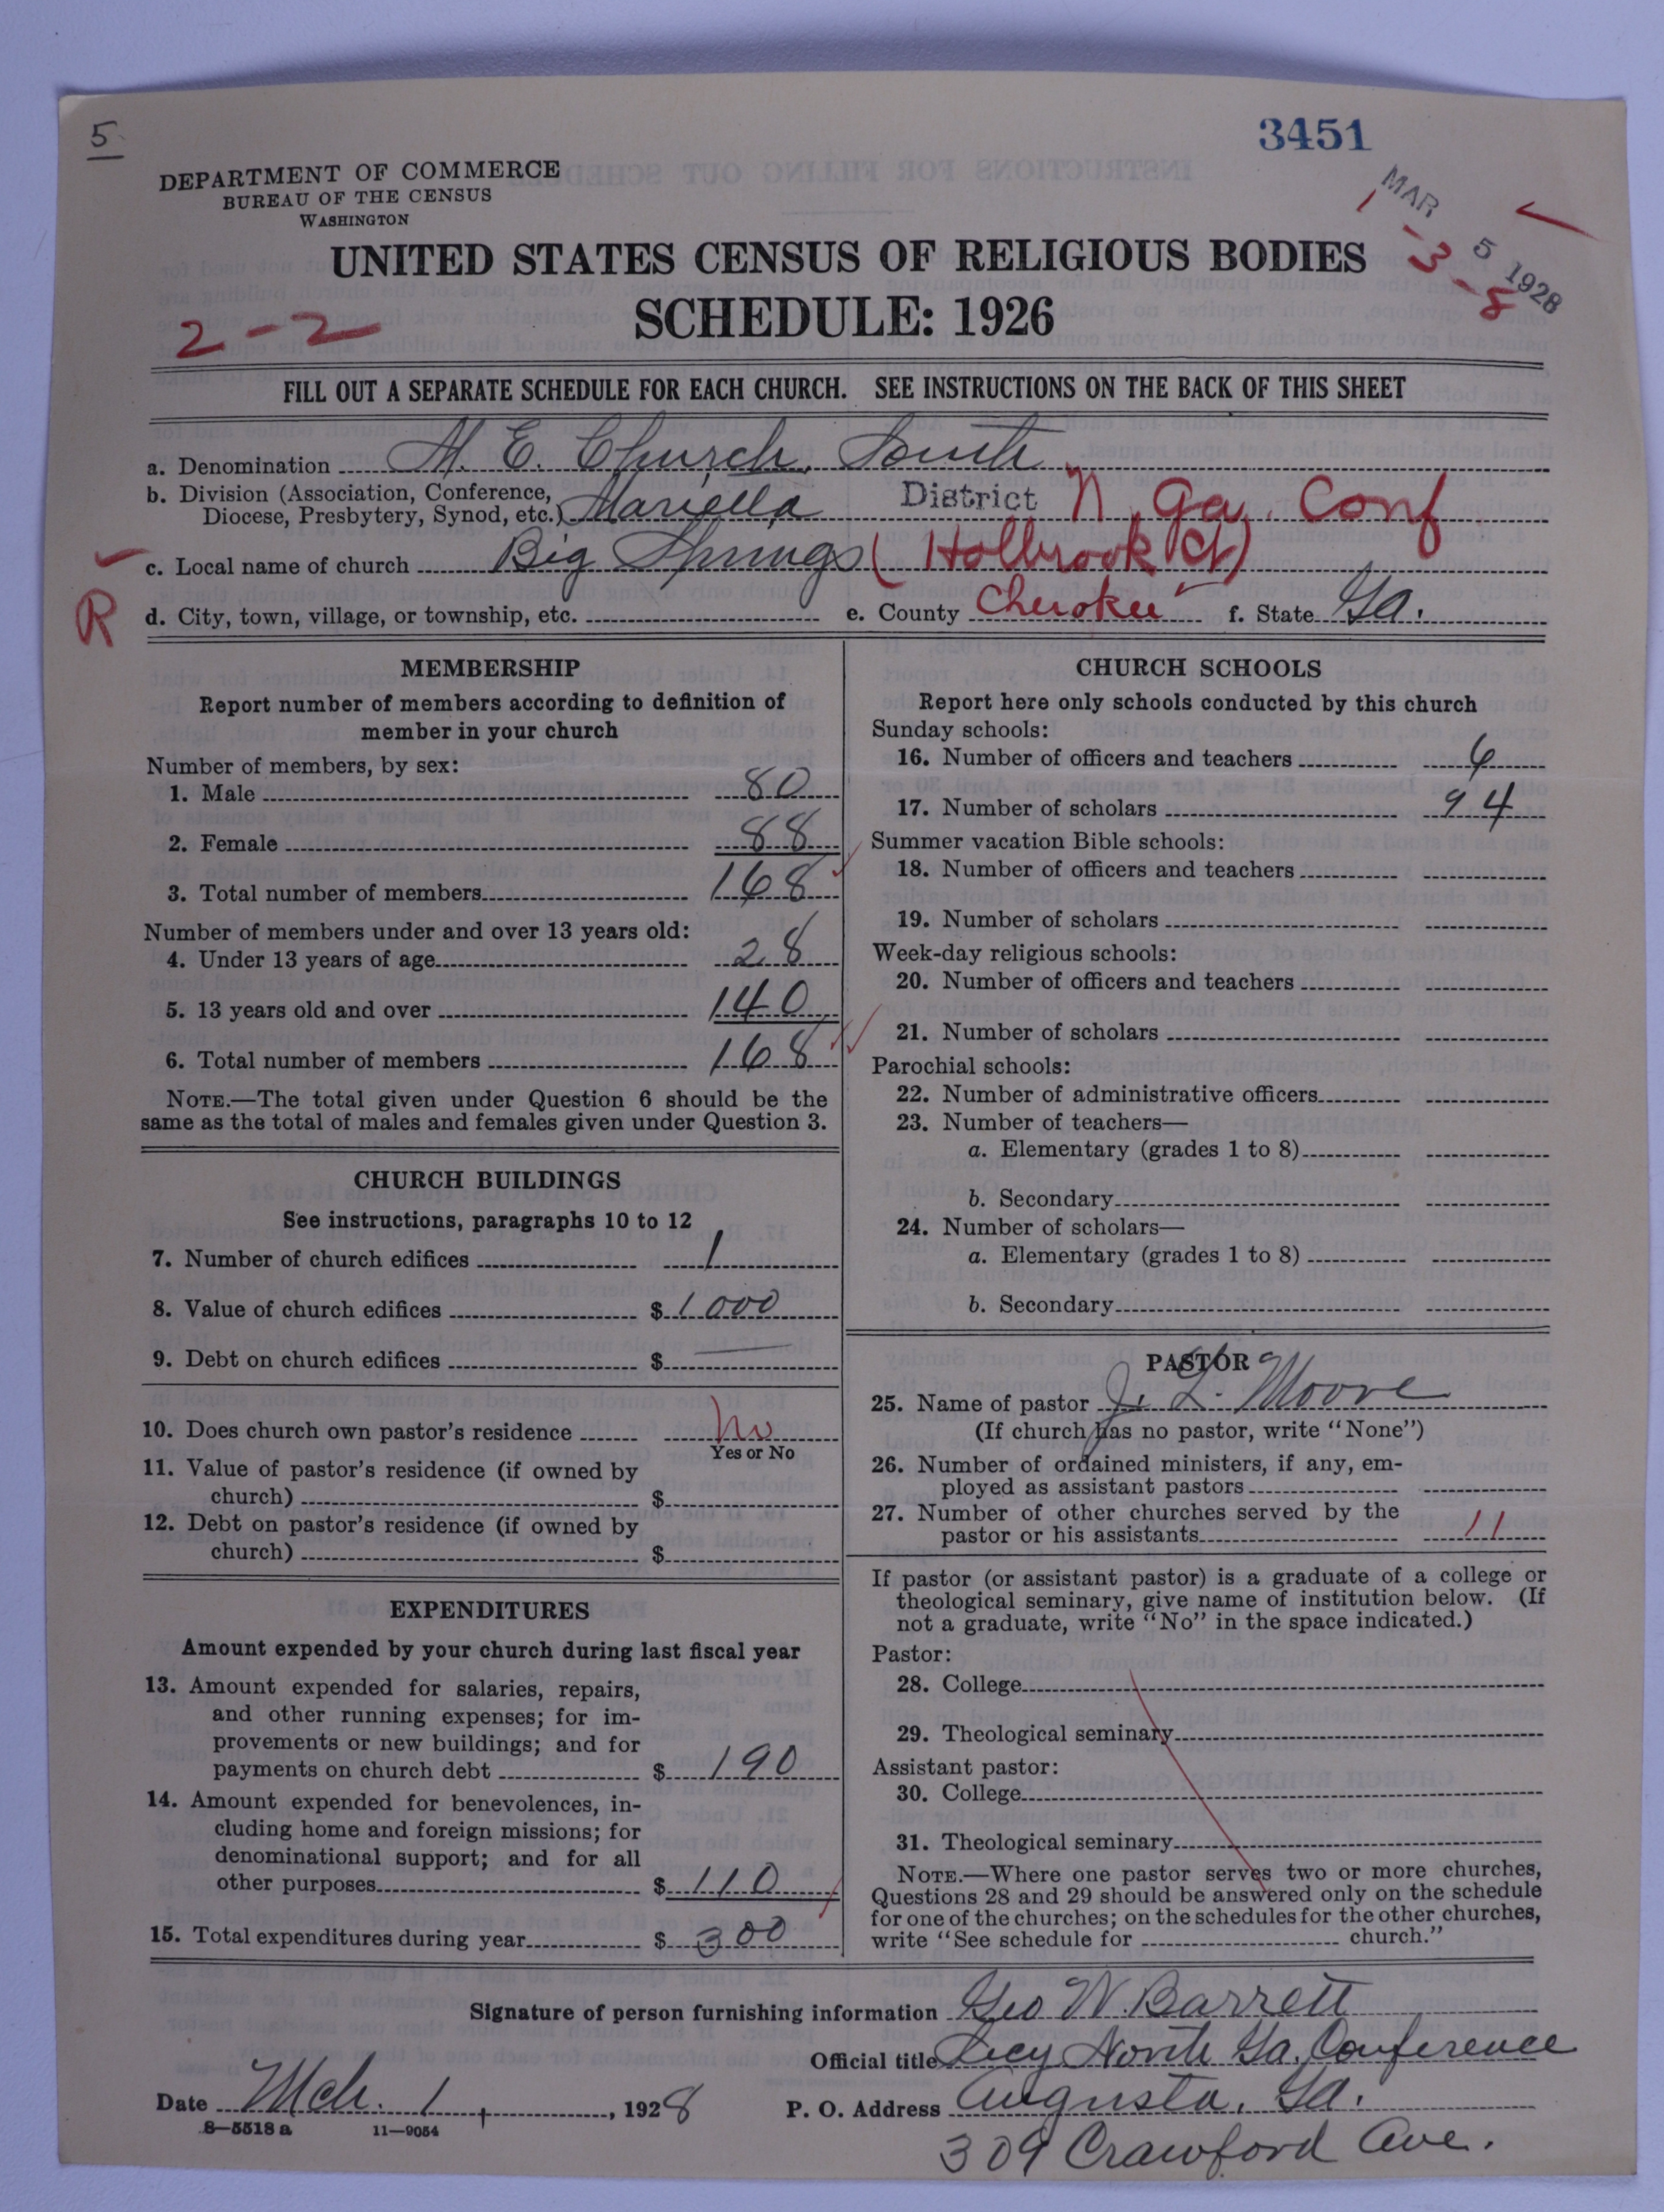 5
3451
DEPARTMENT OF COMMERCE
BUREAU OF THE CENSUS
WASHINGTON
MAR 5 1928
-3-8
UNITED STATES CENSUS OF RELIGIOUS BODIES
SCHEDULE: 1926
2-2
FILL OUT A SEPARATE SCHEDULE FOR EACH CHURCH. SEE INSTRUCTIONS ON THE BACK OF THIS SHEET
a. Denomination M. E. Church, South
b. Division (Association, Conference,
Diocese, Presbytery, Synod, etc.) Mariella District N. Ga. Conf
c. Local name of church Big Springs (Holbrook Ct)
R
d. City, town, village, or township, etc. e. County Cherokee f. State Ga.
MEMBERSHIP
Report number of members according to definition of
member in your church
Number of members, by sex:
1. Male 80
2. Female 88
3. Total number of members 168
Number of members under and over 13 years old:
4. Under 13 years of age 28
5. 13 years old and over 140
6. Total number of members 168
NOTE.—The total given under Question 6 should be the
same as the total of males and females given under Question 3.
CHURCH BUILDINGS
See instructions, paragraphs 10 to 12
7. Number of church edifices 1
8. Value of church edifices $ 1000
9. Debt on church edifices $ —
10. Does church own pastor's residence No
Yes or No
11. Value of pastor's residence (if owned by
church) $
12. Debt on pastor's residence (if owned by
church) $
EXPENDITURES
Amount expended by your church during last fiscal year
13. Amount expended for salaries, repairs,
and other running expenses; for im-
provements or new buildings; and for
payments on church debt $ 190
14. Amount expended for benevolences, in-
cluding home and foreign missions; for
denominational support; and for all
other purposes $ 110
15. Total expenditures during year $ 300
CHURCH SCHOOLS
Report here only schools conducted by this church
Sunday schools:
16. Number of officers and teachers 6
17. Number of scholars 94
Summer vacation Bible schools:
18. Number of officers and teachers
19. Number of scholars
Week-day religious schools:
20. Number of officers and teachers
21. Number of scholars
Parochial schools:
22. Number of administrative officers
23. Number of teachers—
a. Elementary (grades 1 to 8)
b. Secondary
24. Number of scholars—
a. Elementary (grades 1 to 8)
b. Secondary
PASTOR
25. Name of pastor J. L. Moore
(If church has no pastor, write "None")
26. Number of ordained ministers, if any, em-
ployed as assistant pastors
27. Number of other churches served by the
pastor or his assistants 11
If pastor (or assistant pastor) is a graduate of a college or
theological seminary, give name of institution below. (If
not a graduate, write "No" in the space indicated.)
Pastor:
28. College
29. Theological seminary
Assistant pastor:
30. College
31. Theological seminary
NOTE.—Where one pastor serves two or more churches,
Questions 28 and 29 should be answered only on the schedule
for one of the churches; on the schedules for the other churches,
write "See schedule for church."
Signature of person furnishing information Geo W. Barrett
Official title Secy North Ga. Conference
Date Mch. 1, 1928 P. O. Address Augusta, Ga.
8—5518 a 11—9054
309 Crawford Ave.